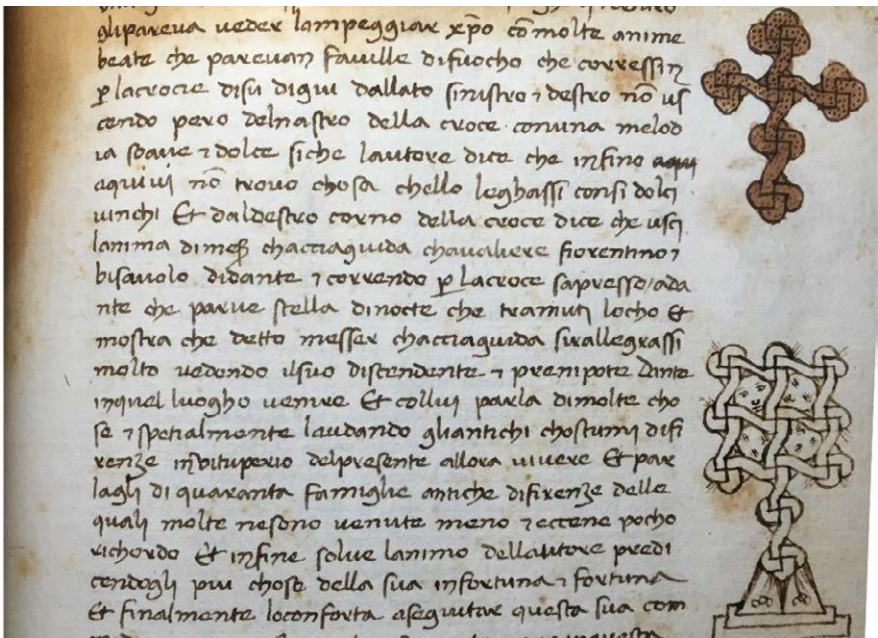 gli pareva veder lampeggiar xp̄o cō molte anime
beate che parevan faville di fuocho che corressin
ꝑ lacrocie disu digiu dallato sinistro ⁊ destro nō us
cendo pero delnastro della croce conuna melod
ia soave ⁊ dolce siche lautore dice che infino
aquivi nō trovo chosa chello leghassi consi dolci
vinchi Et daldestro corno della croce dice che usci
lanima dimeſſ chacciaguida chavaliere fiorentino ⁊
bisavolo didante ⁊ correndo ꝑ lacroce sapresso ada
nte che parve stella dinocte che tramuti locho Et
mostra che detto messer chacciaguida sirallegrassi
molto vedendo ilsuo discendente ⁊ prenipote Dante
inquel luogho venire Et collui parla dimolte cho
se ⁊ spetialmente laudando gliantichi chostumi difi
renze invituperio delpresente allora vivere Et par
lagli di quaranta famiglie antiche difirenze delle
quali molte nesono venute meno ⁊ eccene pocho
richordo Et infine solve lanimo dellautore predi
cendogli piu chose della sua infortuna ⁊ fortuna
Et finalmente loconforta aseguitar questa sua com